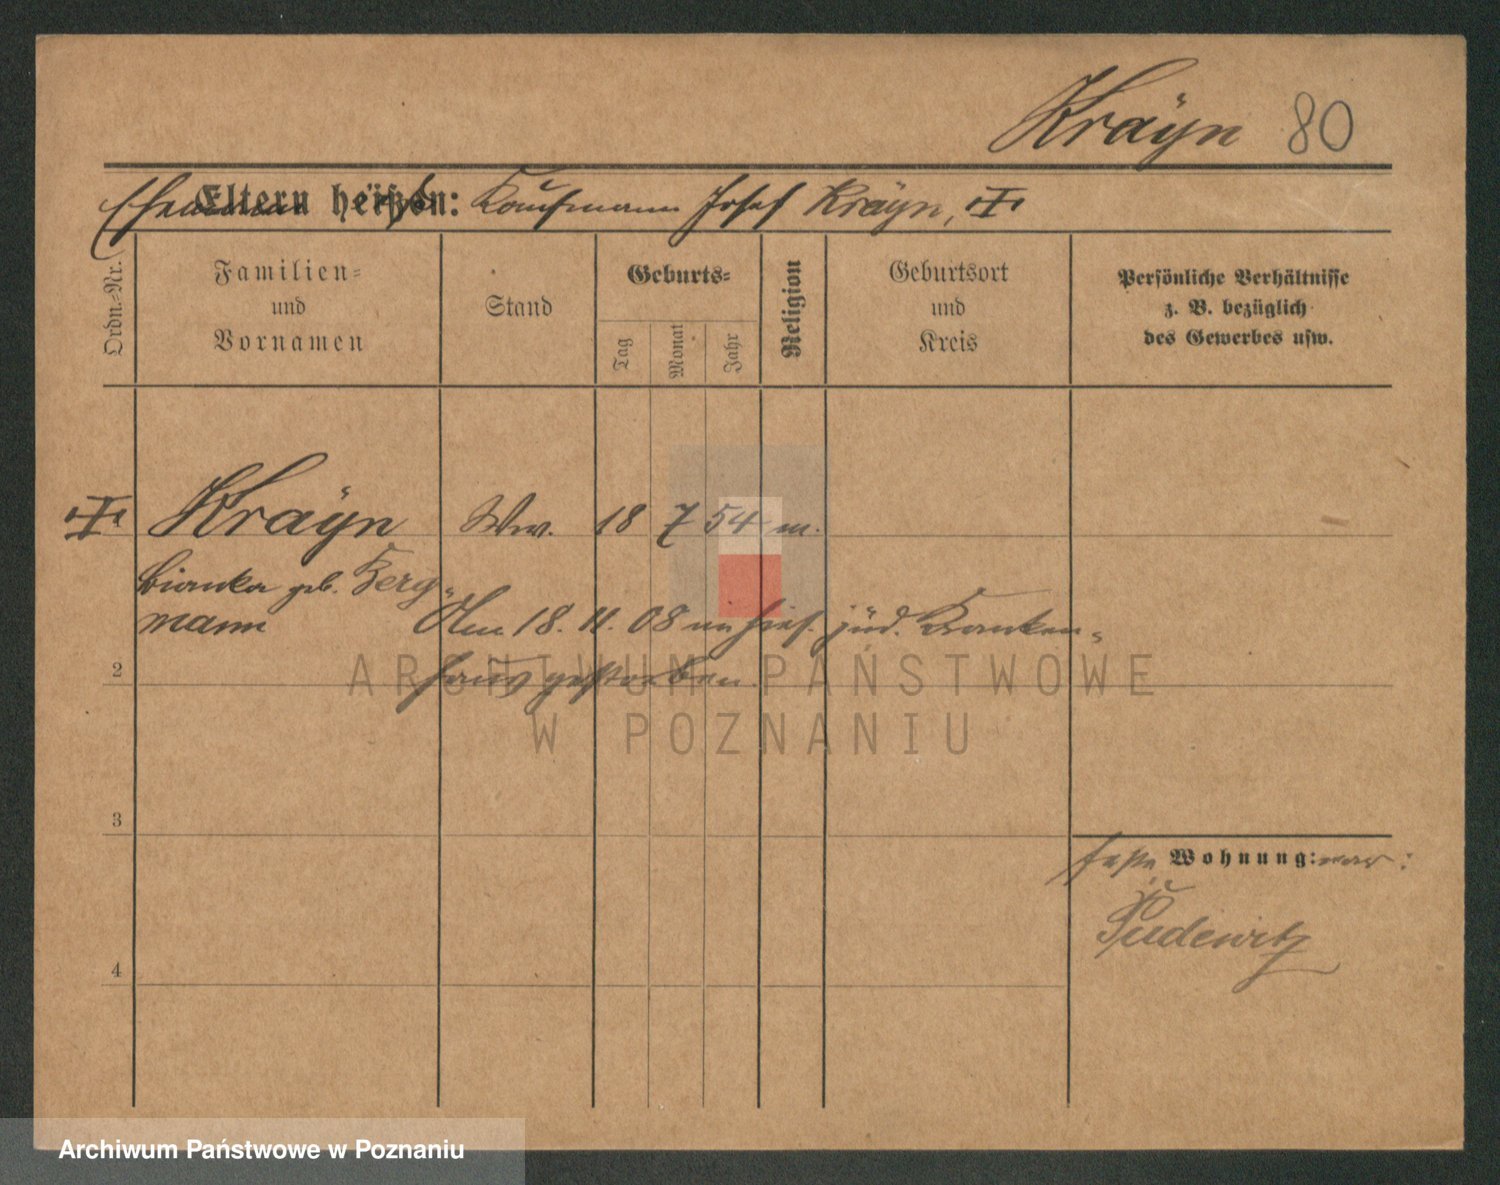 Kraÿn 80
Eltern heißen: Kaufmann Josef Kraÿn,
Ordn.-Nr.
Familien-
und
Vornamen
Stand
Geburts-
Tag
Monat
Jahr
Religion
Geburtsort
und
Kreis
Persönliche Verhältnisse
z. B. bezüglich
des Gewerbes usw.
Kraÿn Ww. 18 7 54 m.
Bianka geb. Berg-
mann
Am 18. 11. 08 im hies. jüd. Kranken-
haus gestorben.
2
3
4
feste Wohnung: war:
Pudewitz
ARCHIWUM PAŃSTWOWE
W POZNANIU
Archiwum Państwowe w Poznaniu